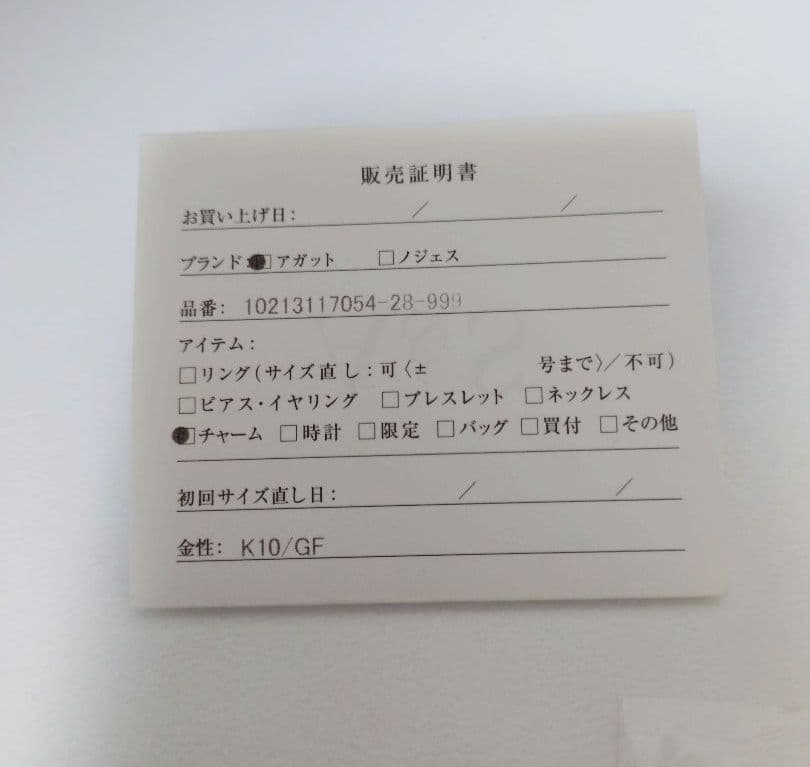 販売証明書
お買い上げ日: / /
ブランド: ■アガット □ノジェス
品番: 10213117054-28-999
アイテム:
□リング(サイズ直し:可〈± 号まで〉/不可)
□ピアス・イヤリング □ブレスレット □ネックレス
■チャーム □時計 □限定 □バッグ □買付 □その他
初回サイズ直し日: / /
金性: K10/GF